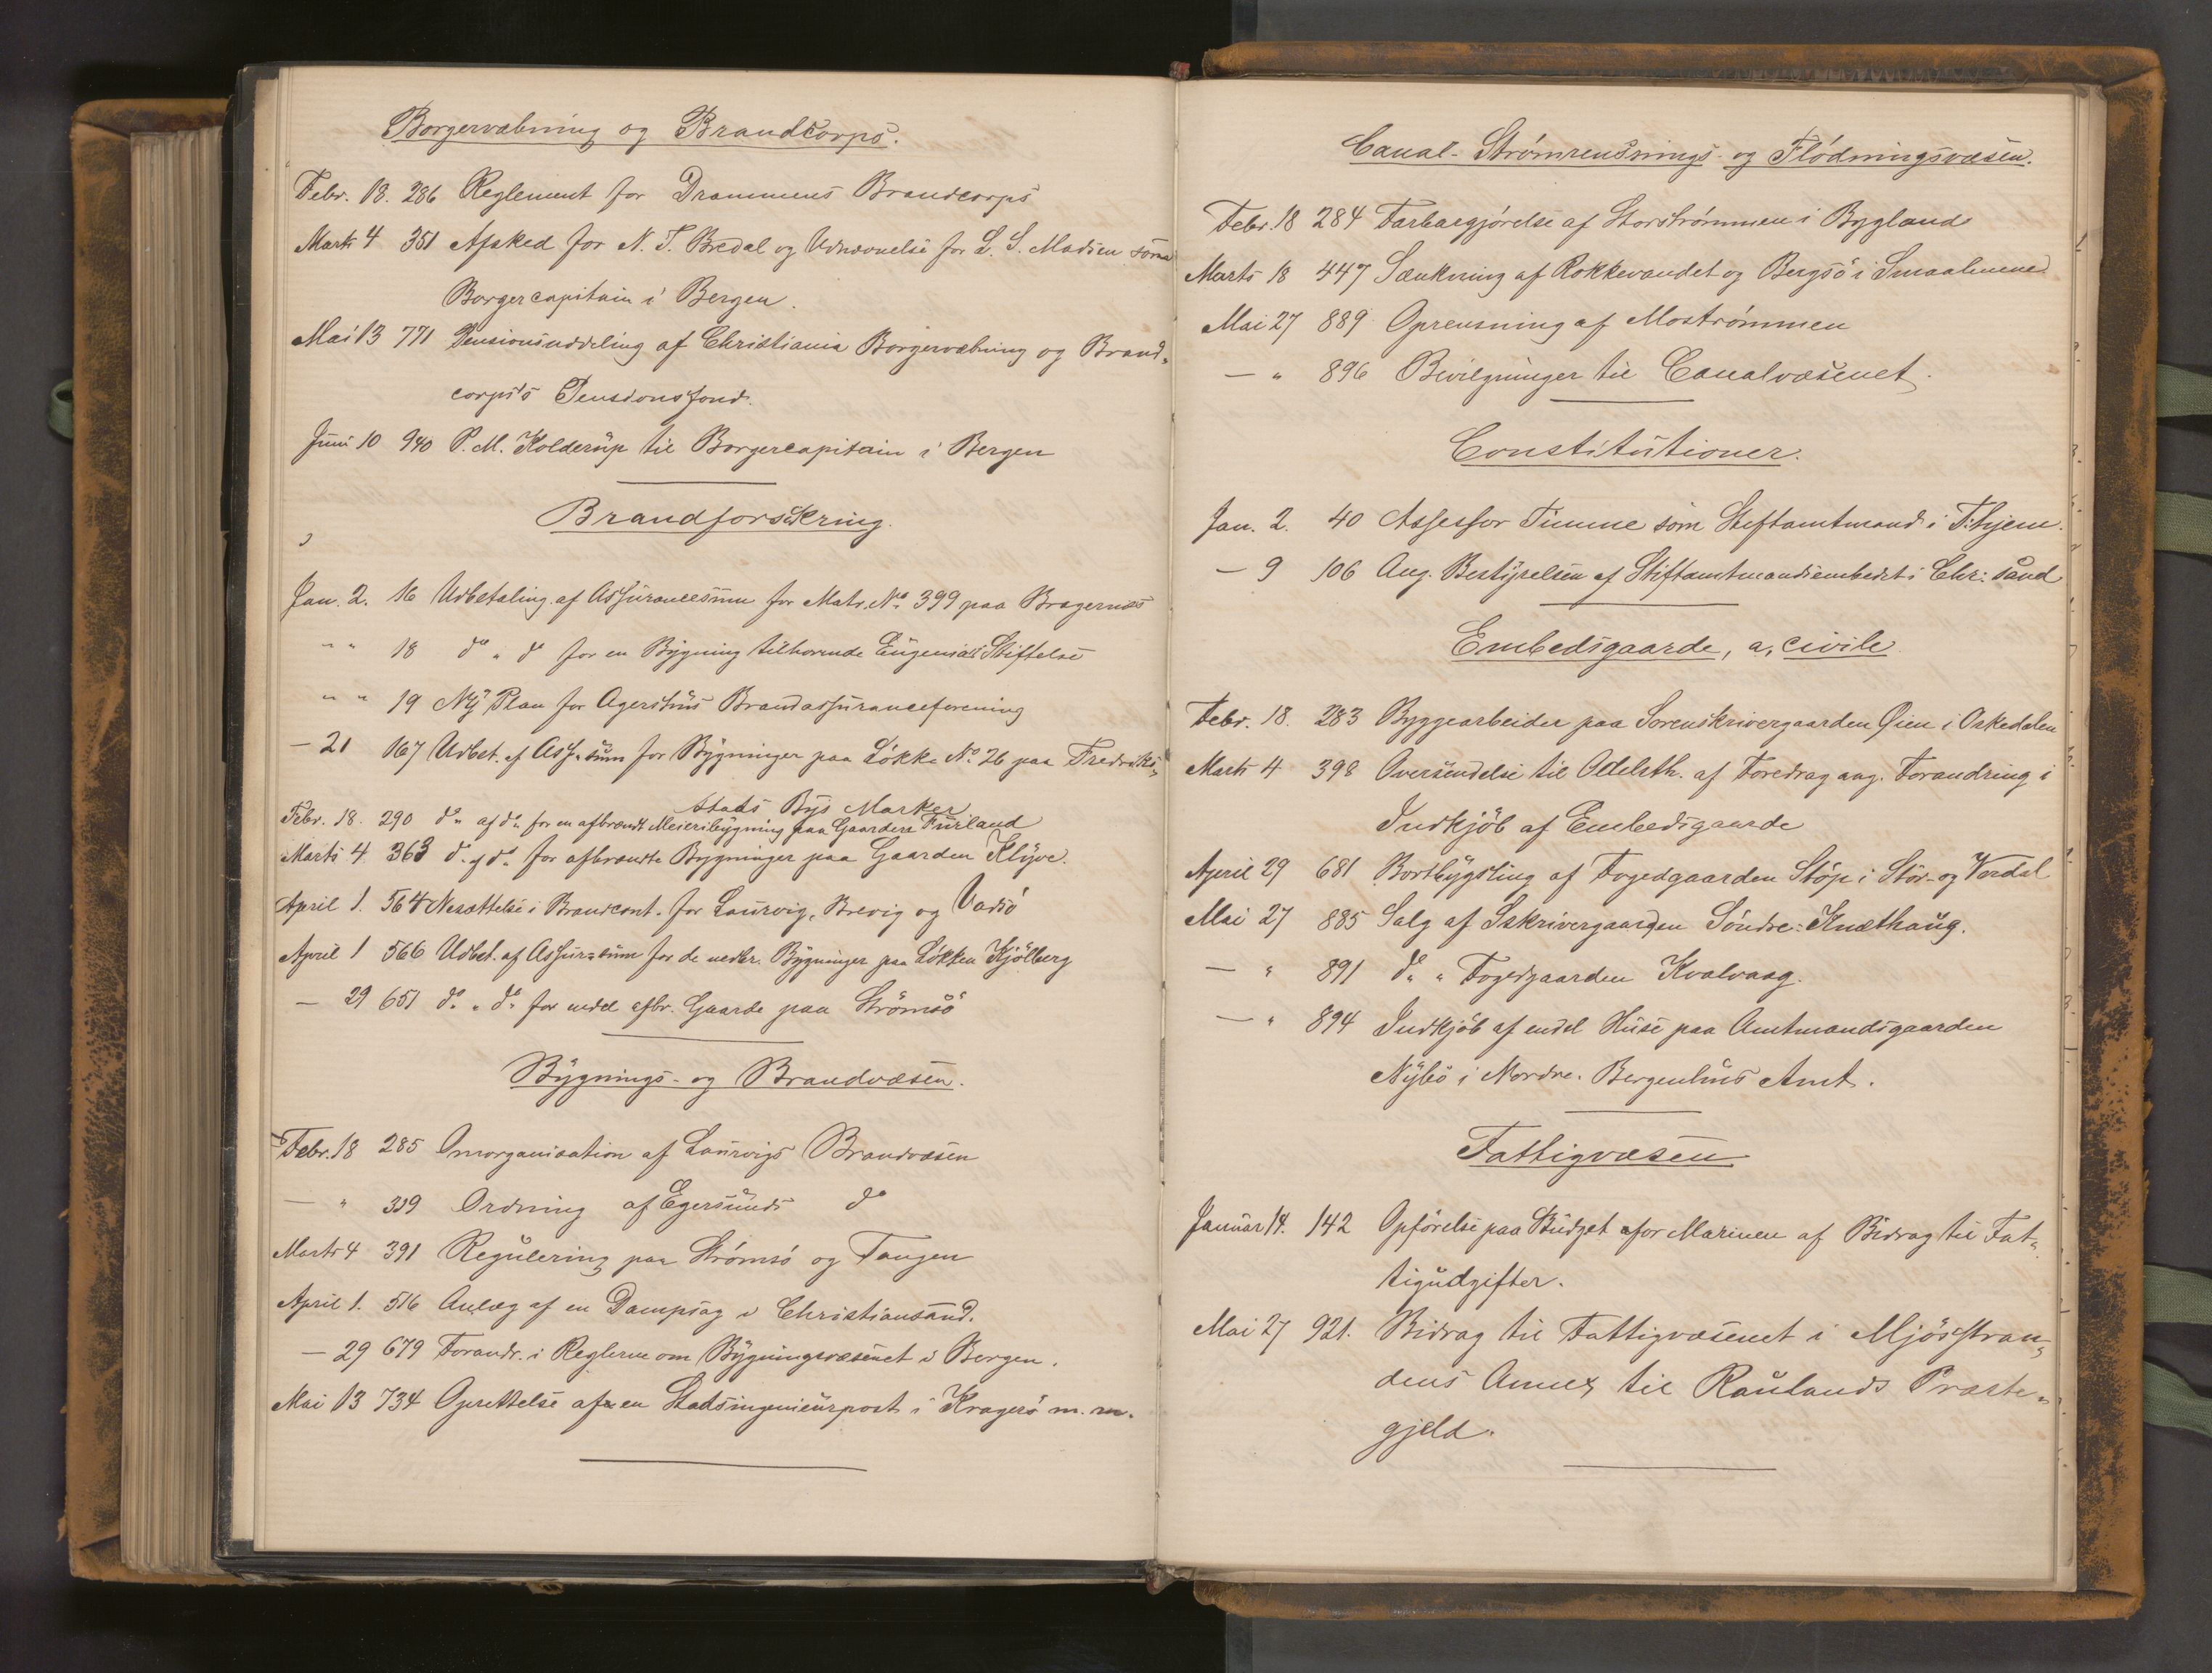 Borgervæbning og Brandcorps.
Febr. 18. 286 Reglement for Drammens Brandcorps
Marts 4 351 Afsked for N. T. Bredal og Udnævnelse for L. S. Madsen som
Borgercapitain i Bergen.
Mai 13 771 Pensionsuddeling af Christiania Borgervæbning og Brand-
corps's Pensionsfond.
Juni 10 940 P. M. Kolderup til Borgercapitain i Bergen
Brandforsikring.
Jan. 2. 16 Udbetaling af Assurancesum for Matr. No 399 paa Bragernæs
" " 18 do " do for en Bygning tilhørende Eugenias Stiftelse
" " 19 Ny Plan for Agershus Brandassuranceforening
— 21 167 Udbet. af Ass-sum for Bygninger paa Løkke No 26 paa Fredriks-
stads Bys Marker
Febr. 18. 290 do af do for en afbrændt Meieribygning paa Gaardene Furland
Marts 4 363 do af do for afbrændte Bygninger paa Gaarden Klyve.
April 1. 564 Nesættelse i Brandcont. for Laurvig, Brevig og Vadsö
April 1 566 Udbet. af Assur-sum for de nedbr. Bygninger paa Løkken Kjölberg
— 29 651 do " do for endel afbr. Gaarde paa Strömsö
Bygnings- og Brandvæsen.
Febr. 18 285 Omorganisation af Laurvigs Brandvæsen
— " 339 Ordning af Egersunds do
Marts 4 391 Regulering paa Strömsö og Tangen
April 1. 516 Anlæg af en Dampsag i Christiansand.
— 29 679 Forandr. i Reglerne om Bygningsvæsenet i Bergen.
Mai 13 734 Oprettelse af en Stadsingenieurpost i Kragerö m. m.
Canal- Strømrensnings- og Flödningsvæsen.
Febr. 18 284 Farbargjörelse af Storströmmen i Bygland
Marts 18 447 Sænkning af Rokkevandet og Bergsö i Smaalenene
Mai 27 889 Oprensning af Moströmmen
— " 896 Bevilgninger til Canalvæsenet.
Constitutioner.
Jan. 2. 40 Assessor Timme som Stiftamtmand i T:hjem.
— 9 106 Ang. Bestyrelsen af Stiftamtmandsembedet i Chr:sand
Embedsgaarde, a, civile
Febr. 18. 283 Byggearbeider paa Sorenskrivergaarden Öien i Orkedalen
Marts 4 398 Oversendelse til Odelsth. af Foredrag ang. Forandring i
Indkjöb af Embedsgaarde
April 29 681 Bortbygsling af Fogedgaarden Stöp i Stör- og Verdal
Mai 27 885 Salg af Sskrivergaarden Söndre: Knæthaug.
— " 891 do " Fogedgaarden Kvalvaag.
— " 894 Indkjöb af endel Huse paa Amtmandsgaarden
Nybö i Nordre. Bergenhus Amt.
Fattigvæsen
Januar 14. 142 Opförelse paa Budget for Marinen af Bidrag til Fat-
tigudgifter.
Mai 27 921. Bidrag til Fattigvæsenet i Mjösstran-
dens Annex til Raulands Præste-
gjeld.